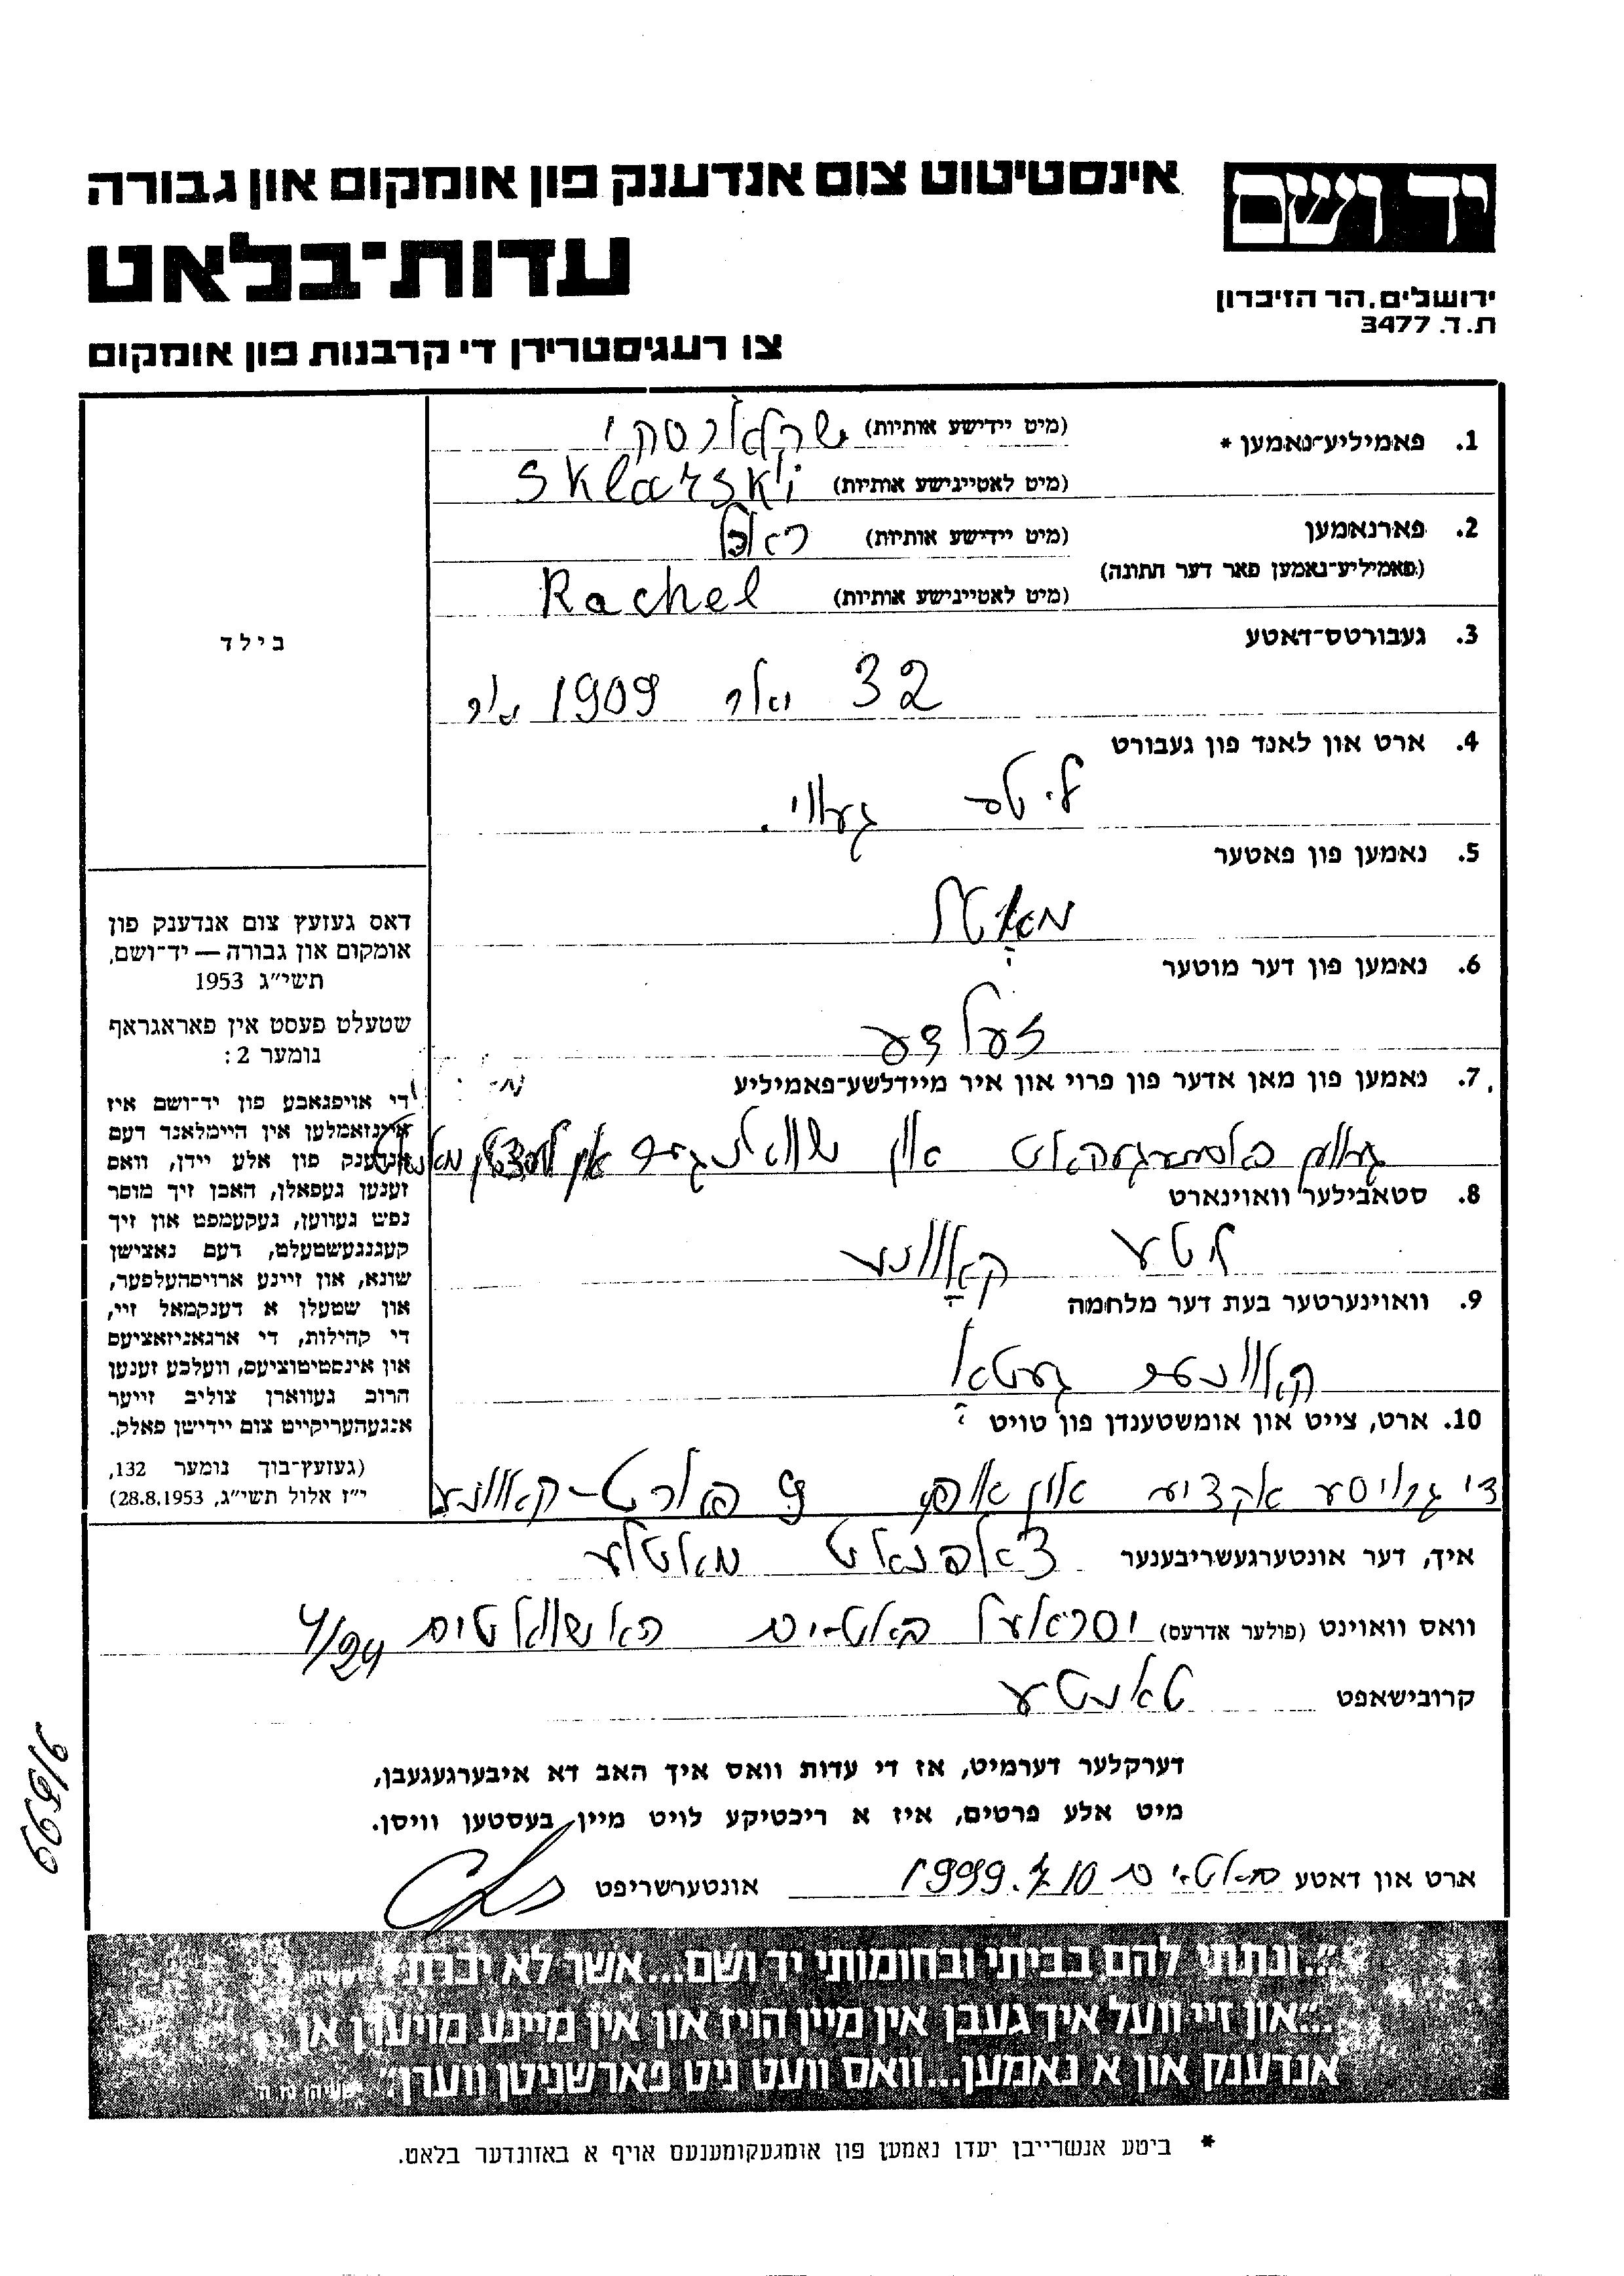 אינסטיטוט צום אנדענק פון אומקום און גבורה
יד ושם
עדות־בלאט
ירושלים. הר הזיכרון
ת.ד. 3477
צו רעגיסטרירן די קרבנות פון אומקום
1. פאמיליע־נאמען * (מיט יידישע אותיות) שקלארסקי
(מיט לאטייניש​ע אותיות) Sklarski
2. פארנאמען (מיט יידישע אותיות)
(פאמיליע־נאמען פאר דער חתונה)
(מיט לאטיינישע אותיות) Rachel
3. געבורטס־דאטע
32 יאר 1909 יאר
4. ארט און לאנד פון געבורט
ליטע
5. נאמען פון פאטער
6. נאמען פון דער מוטער
זעלדע
7. נאמען פון מאן אדער פון פרוי און איר מיידלשע־פאמיליע
און
8. סטאבילער וואוינארט
ליטע קאוונע
9. וואוינערטער בעת דער מלחמה
קאוונע געטא
10. ארט, צייט און אומשטענדן פון טויט
די גרויסע אקציע און 9 פארט-קאוונע
בילד
דאס געזעץ צום אנדענק פון
אומקום און גבורה — יד־ושם,
תשי״ג 1953
שטעלט פעסט אין פאראגראף
נומער 2:
די אויפגאבע פון יד־ושם איז
איינזאמלען אין היימלאנד דעם
אנדענק פון אלע יידן, וואס
זענען געפאלן, האבן זיך מוסר
נפש געווען, געקעמפט און זיך
קעגנגעשטעלט, דעם נאצישן
שונא, און זיינע ארויסהעלפער,
און שטעלן א דענקמאל זיי,
די קהילות, די ארגאניזאציעס
און אינסטיטוציעס, וועלכע זענען
חרוב געווארן צוליב זייער
אנגעהעריקייט צום יידישן פאלק.
(געזעץ־בוך נומער 132,
י״ז אלול תשי״ג, 28.8.1953)
איך, דער אונטערגעשריבענער
וואס וואוינט (פולער אדרעס) יסראעל 4/24
קרובישאפט טאנטע
דערקלער דערמיט, אז די עדות וואס איך האב דא איבערגעגעבן,
מיט אלע פרטים, איז א ריכטיקע לויט מיין בעסטען וויסן.
ארט און דאטע 1999 אונטערשריפט
״...ונתתי להם בביתי ובחומותי יד ושם...אשר לא יכרת״
״...און זיי וועל איך געבן אין מיין הויז און אין מיינע מויערן אן
אנדענק און א נאמען...וואס וועט ניט פארשניטן ווערן״ ישעיהו נ״ו ה׳
* ביטע אנשרייבן יעדן נאמען פון אומגעקומענעם אויף א באזונדער בלאט.